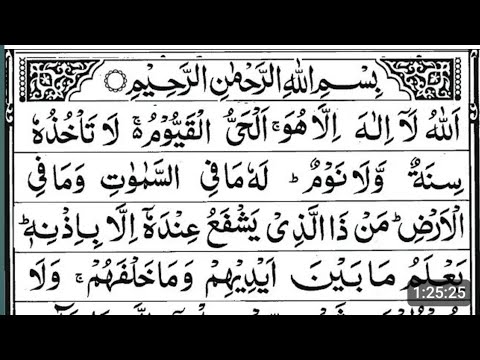 بِسْمِ اللهِ الرَّحْمٰنِ الرَّحِيْمِ
اَللهُ لَآ اِلٰهَ اِلَّا هُوَ ۚ اَلْحَىُّ الْقَيُّوْمُ ۚ لَا تَاْخُذُهٗ
سِنَةٌ وَّلَا نَوْمٌ ؕ لَهٗ مَا فِى السَّمٰوٰتِ وَمَا فِى
الْاَرْضِ ؕ مَنْ ذَا الَّذِىْ يَشْفَعُ عِنْدَهٗٓ اِلَّا بِاِذْنِهٖ ؕ
يَعْلَمُ مَا بَيْنَ اَيْدِيْهِمْ وَمَا خَلْفَهُمْ ۚ وَلَا
1:25:25